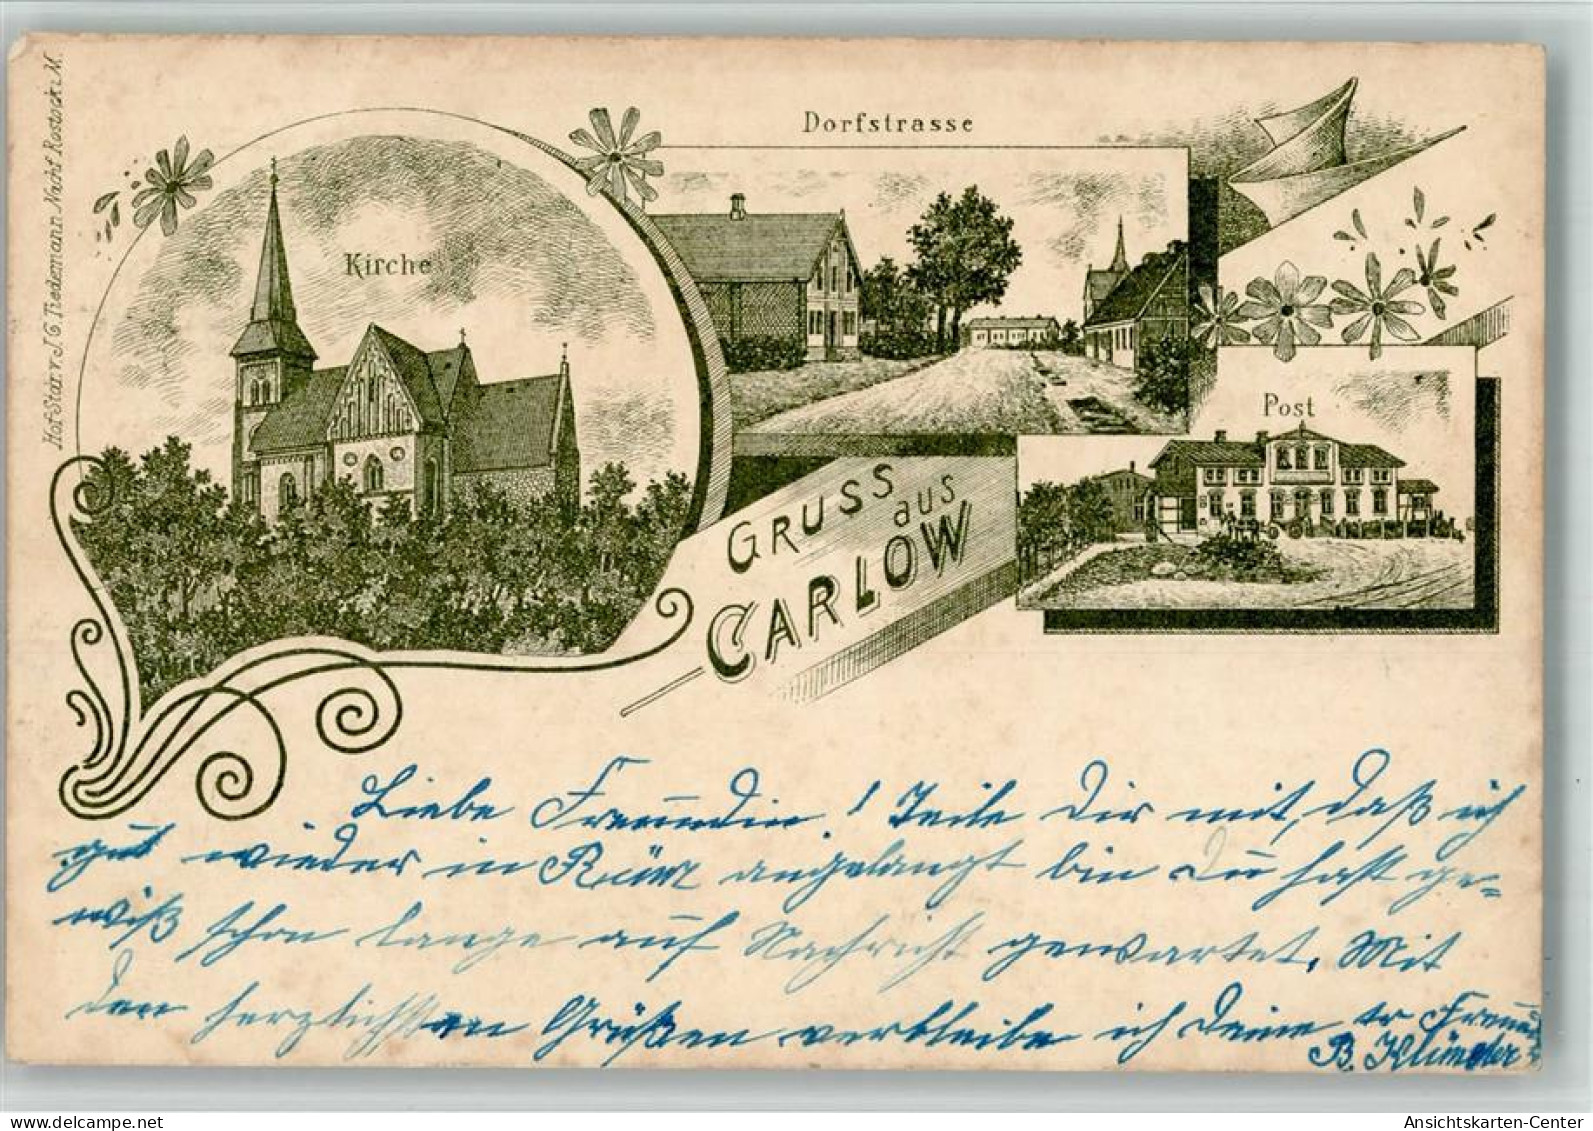 Hof-Steindr. v. J. G. Tiedemann Nachf. Rostock i. M.
Kirche
Dorfstrasse
Post
GRUSS
aus
CARLOW
Liebe Freundin! Teile Dir mit, daß ich
gut wieder in angelangt bin Du hast ge=
wiß schon lange auf Nachricht gewartet. Mit
den herzlichsten Grüßen verbleibe ich Deine tr Freundin
B.
delcampe.net
Ansichtskarten-Center